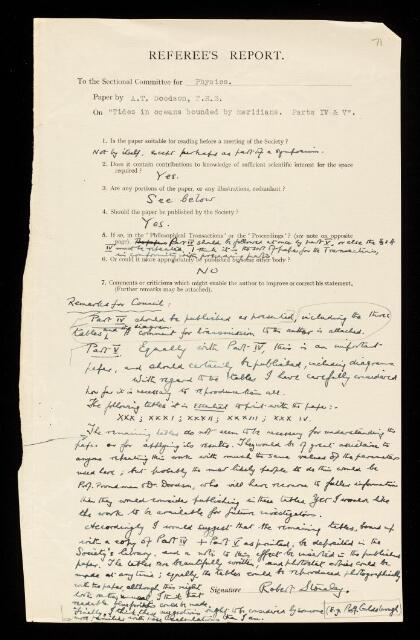 71
REFEREE'S REPORT.
To the Sectional Committee for Physics.
Paper by A.T. Doodson, F.R.S.
On "Tides in oceans bounded by meridians. Parts IV & V".
1. Is the paper suitable for reading before a meeting of the Society ?
Not by itself, except perhaps as part of a symposium.
2. Does it contain contributions to knowledge of sufficient scientific interest for the space
required ? Yes.
3. Are any portions of the paper, or any illustrations, redundant ?
See below
4. Should the paper be published by the Society ?
Yes.
5. If so, in the "Philosophical Transactions" or the "Proceedings" ? (see note on opposite
page). Part IV should be followed at once by part V, or else the
IV I think it is the sort of paper for the Transactions,
in conformity with preceding parts.
6. Or could it more appropriately be published by some other body ?
NO
7. Comments or criticisms which might enable the author to improve or correct his statement.
(Further remarks may be attached).
Remarks for Council:
Part IV should be published as presented, including the three
tables, and diagrams. A comment for transmission to the author is attached.
Part V. Equally with Part IV, this is an important
paper, and should certainly be published, including diagrams
With regard to the tables I have carefully considered
how far it is necessary to reproduce them all.
The following tables it is essential to print with the paper:-
XXX ; XXXI ; XXXII ; XXXIII ; XXXIV.
The remaining tables do not seem to be necessary for understanding the
paper or for applying its results. They would be of great assistance to
anyone repeating the work with much the same values of the parameters
used here; but probably the most likely people to do this would be
Prof. Proudman or Dr. Doodson, who will have recourse to fuller information
than they would consider publishing in these tables. Yet I would like
the work to be available for future investigators.
Accordingly I would suggest that the remaining tables, bound up
with a copy of Part IV & Part V as printed, be deposited in the
Society's library, and a note to this effect be inserted in the published
paper. The tables are beautifully written, and photostat copies could be
made at any time; equally, the tables could be reproduced photographically
with the paper although this might
I think that
readable could be made. Signature Robert Stoneley.
Finally, I think this suggestion ought to be considered by someone (e.g. Prof. Goldsbrough)
more familiar with these calculations than I am.